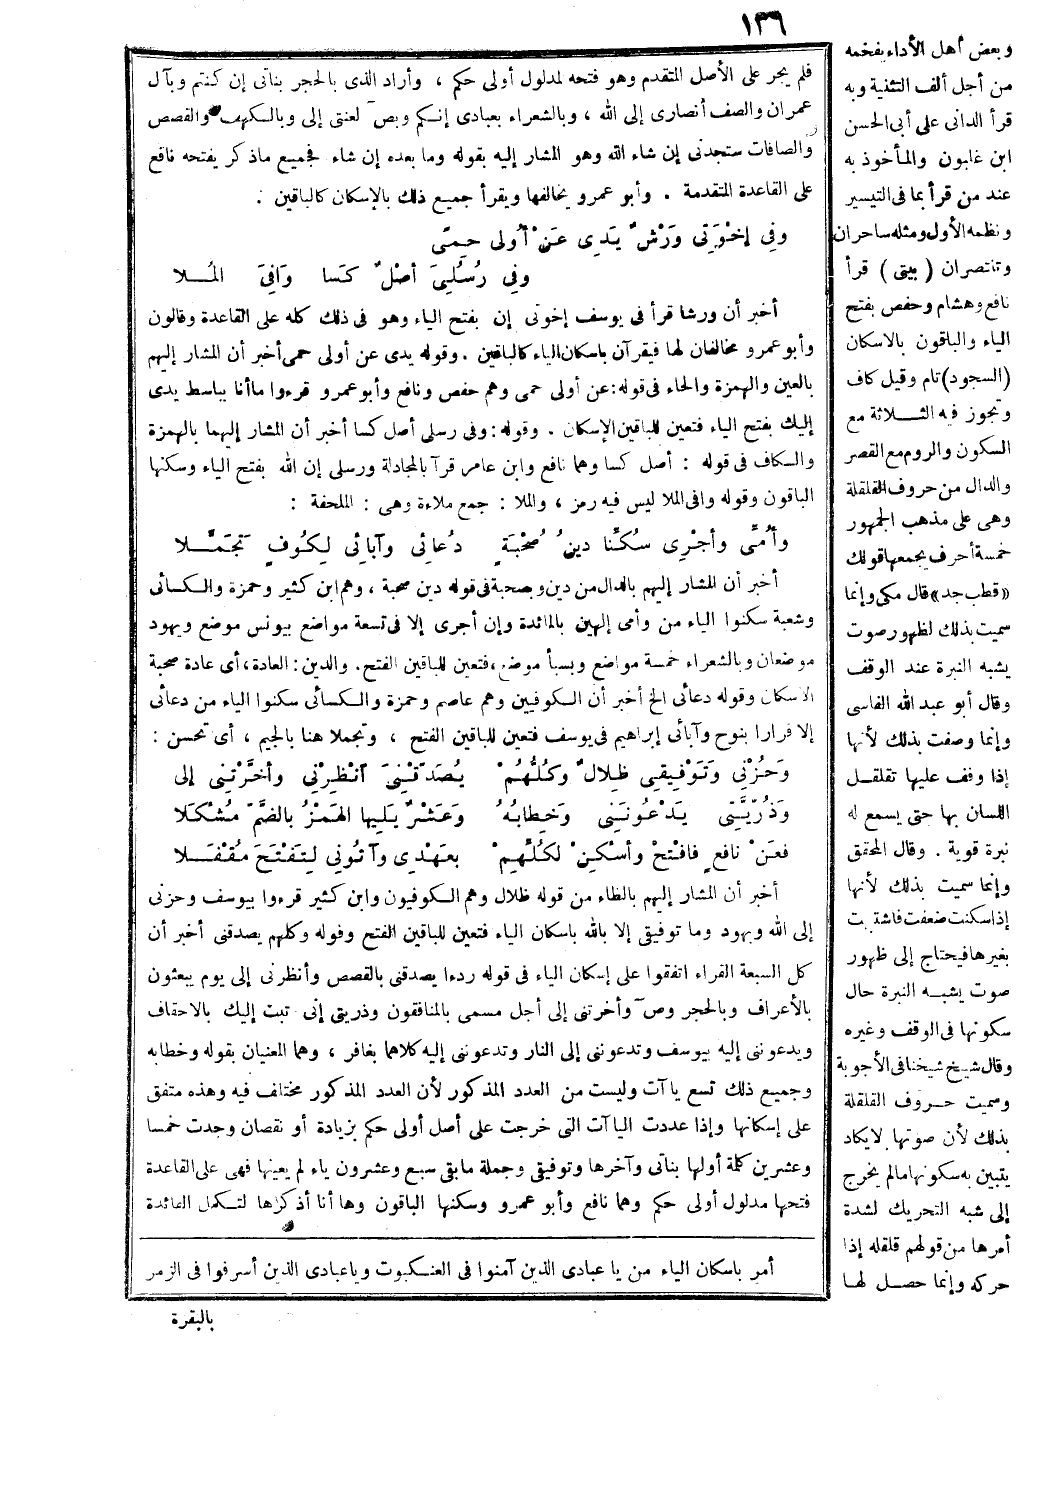 ١٣٦
فلم يجر على الأصل المتقدم وهو فتحه لمدلول أولى حكم ، وأراد الذى بالحجر بناتى إن كنتم وبآل
عمران والصف أنصارى إلى الله ، وبالشعراء بعبادى إنكم وبص ~ لعنتى إلى وبالكهف والقصص
والصافات ستجدنى إن شاء الله وهو المشار إليه بقوله وما بعده إن شاء فجميع ماذكر يفتحه نافع
على القاعدة المتقدمة . وأبو عمرو يخالفها ويقرأ جميع ذلك بالإسكان كالباقين .
وفِي إخْوَتِي وَرْشٌ يَدِى عَنْ أُولى حِمًى
وفِي رُسُلِيَ أصْلٌ كَسَا وَافِيَ المُلا
أخبر أن ورشا قرأ فى يوسف إخوتى إن بفتح الياء وهو فى ذلك كله على القاعدة وقالون
وأبو عمرو مخالفان لها فيقرآن باسكان الياء كالباقين . وقوله يدى عن أولى حمى أخبر أن المشار إليهم
بالعين والهمزة والحاء فى قوله : عن أولى حمى وهم حفص ونافع وأبو عمرو قرءوا ما أنا بباسط يدى
إليك بفتح الياء فتعين للباقين الإسكان . وقوله : وفى رسلى أصل كسا أخبر أن المشار إليهما بالهمزة
والكاف فى قوله : أصل كسا وهما نافع وابن عامر قرآ بالمجادلة ورسلى إن الله بفتح الياء وسكنها
الباقون وقوله وافى الملا ليس فيه رمز ، والملا : جمع ملاءة وهى : الملحفة :
وأُمِّى وأجْرِى سُكِّنا دينُ صُحْبَةٍ دُعائِي وآبائِي لِكُوفٍ تَجَمَّلا
أخبر أن المشار إليهم بالدال من دين وبصحبة فى قوله دين صحبة ، وهم ابن كثير وحمزة والكسائى
وشعبة سكنوا الياء من وأمى إلهين بالمائدة وإن أجرى إلا فى تسعة مواضع بيونس موضع وبهود
موضعان وبالشعراء خمسة مواضع وبسبأ موضع ، فتعين للباقين الفتح . والدين : العادة ، أى عادة صحبة
الاسكان وقوله دعائى الخ أخبر أن الكوفيين وهم عاصم وحمزة والكسائى سكنوا الياء من دعائى
إلا فرارا بنوح وآبائى إبراهيم فى يوسف فتعين للباقين الفتح ، وتجملا هنا بالجيم ، أى تحسن :
وَحُزْنِي وَتَوْفِيقِي ظِلالٌ وكُلُّهُمْ يُصَدِّقْنِيَ أنْظِرْنِي وأخَّرْتَنِي إلى
وَذُرِّيَّتِي يَدْعُونَنِي وَخِطابُهُ وَعَشْرٌ يَلِيها الهَمْزُ بالضَّمِّ مُشْكَلا
فعَنْ نافِعٍ فافْتَحْ وأسْكِنْ لكُلِّهِمْ بعَهْدِى وآتُونِي لِتَفْتَحَ مُقْفَلا
أخبر أن المشار إليهم بالظاء من قوله ظلال وهم الكوفيون وابن كثير قرءوا بيوسف وحزنى
إلى الله وبهود وما توفيقى إلا بالله باسكان الياء فتعين للباقين الفتح وقوله وكلهم يصدقنى أخبر أن
كل السبعة القراء اتفقوا على إسكان الياء فى قوله ردءا يصدقنى بالقصص وأنظرنى إلى يوم يبعثون
بالأعراف وبالحجر وص ~ وأخرتنى إلى أجل مسمى بالمنافقون وذريتى إنى تبت إليك بالاحقاف
ويدعوننى إليه بيوسف وتدعوننى إلى النار وتدعوننى إليه كلاهما بغافر ، وهما المعنيان بقوله وخطابه
وجميع ذلك تسع ياآت وليست من العدد المذكور لأن العدد المذكور مختلف فيه وهذه متفق
على إسكانها وإذا عددت الياآت التى خرجت على أصل أولى حكم بزيادة أو نقصان وجدت خمسا
وعشرين كلمة أولها بناتى وآخرها وتوفيقى وجملة مابقى سبع وعشرون ياء لم يعينها فهى على القاعدة
فتحها مدلول أولى حكم وهما نافع وأبو عمرو وسكنها الباقون وها أنا أذكرها لتكمل الفائدة
أمر باسكان الياء من يا عبادى الذين آمنوا فى العنكبوت وياعبادى الذين أسرفوا فى الزمر
بالبقرة
وبعض أهل الأداء يفخمه
من أجل ألف التثنية وبه
قرأ الدانى على أبى الحسن
ابن غلبون والمأخوذ به
عند من قرأ بما فى التيسير
ونظمه الأول ومثله ساحران
وتنتصران ( بيتى ) قرأ
نافع وهشام وحفص بفتح
الياء والباقون بالاسكان
(السجود) تام وقيل كاف
وتجوز فيه الثلاثة مع
السكون والروم مع القصر
والدال من حروف القلقلة
وهى على مذهب الجمهور
خمسة أحرف يجمعها قولك
«قطب جد» قال مكى وإنما
سميت بذلك لظهور صوت
يشبه النبرة عند الوقف
وقال أبو عبد الله الفاسى
وإنما وصفت بذلك لأنها
إذا وقف عليها تقلقل
اللسان بها حتى يسمع له
نبرة قوية . وقال المحقق
وإنما سميت بذلك لأنها
إذا سكنت ضعفت فاشتبهت
بغيرها فيحتاج إلى ظهور
صوت يشبه النبرة حال
سكونها فى الوقف وغيره
وقال شيخ شيخنا فى الأجوبة
وسميت حروف القلقلة
بذلك لأن صوتها لايكاد
يتبين به سكونها مالم يخرج
إلى شبه التحريك لشدة
أمرها من قولهم قلقله إذا
حركه وإنما حصل لها